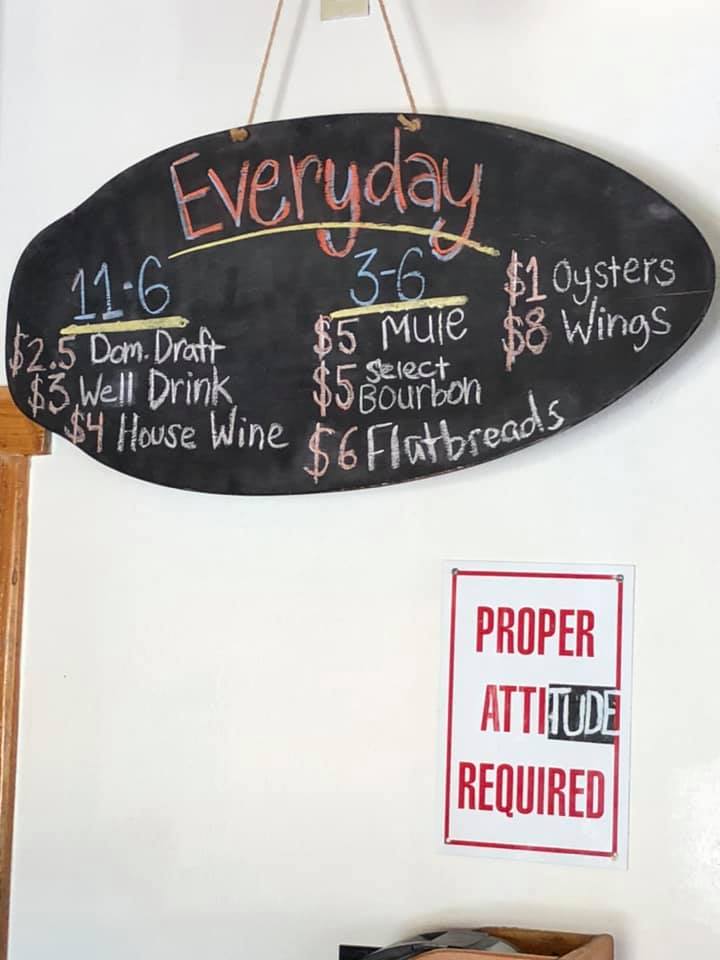 Everyday
11-6
$2.5 Dom. Draft
$3 Well Drink
$4 House Wine
3-6
$5 Mule
$5 Select Bourbon
$6 Flatbreads
$1 Oysters
$8 Wings
PROPER
ATTITUDE
REQUIRED